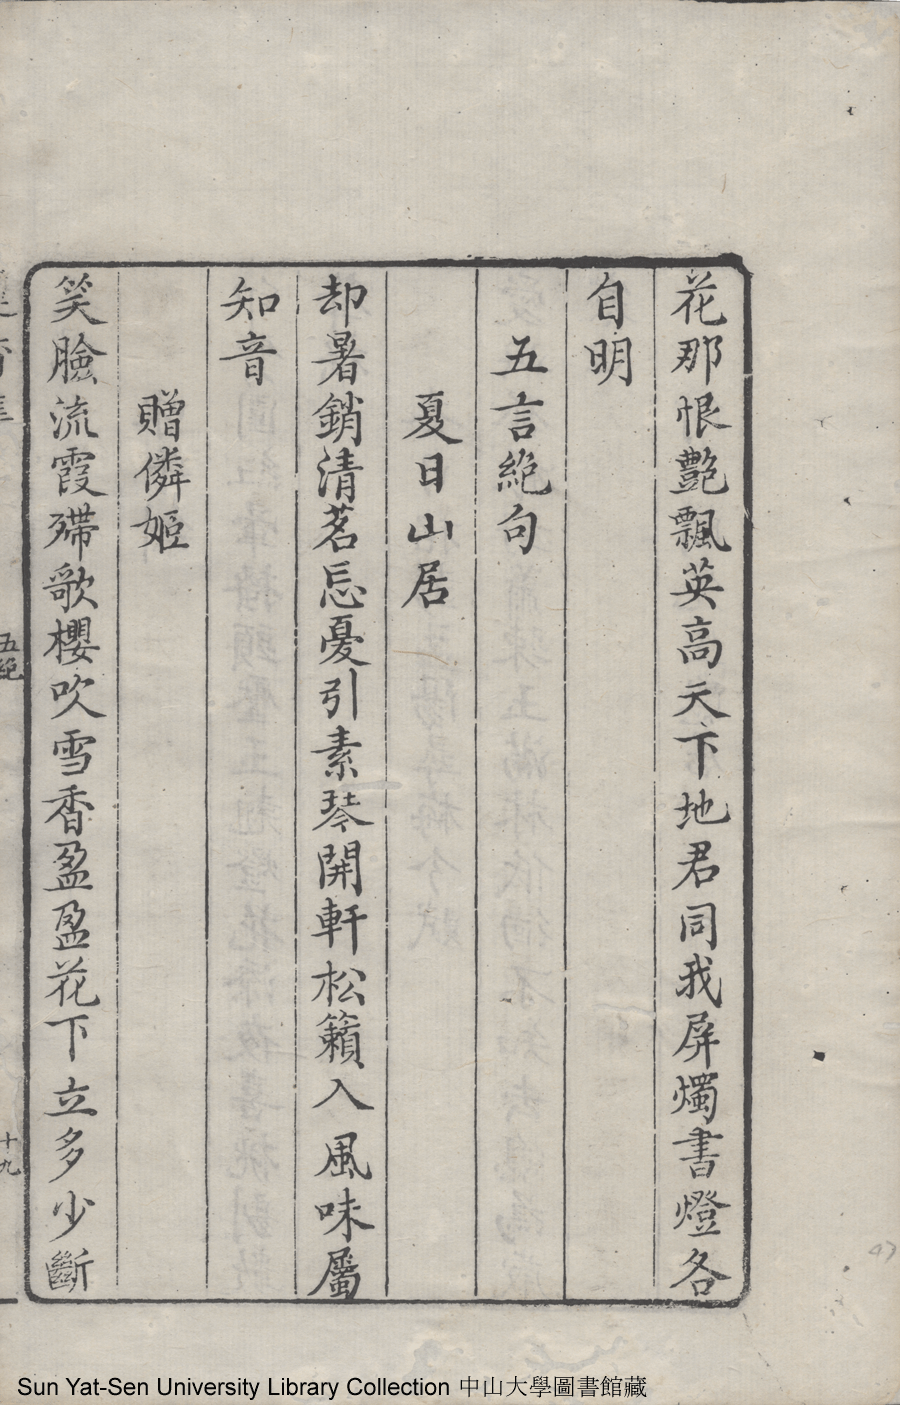 花那恨艷飄英高天下地君同我屏燭書燈各
自明
五言絕句
夏日山居
却暑銷清茗忘憂引素琴開軒松籟入風味屬
知音
贈憐姬
笑臉流霞殢歌櫻吹雪香盈盈花下立多少斷
五絕
十九
Sun Yat-Sen University Library Collection 中山大學圖書館藏